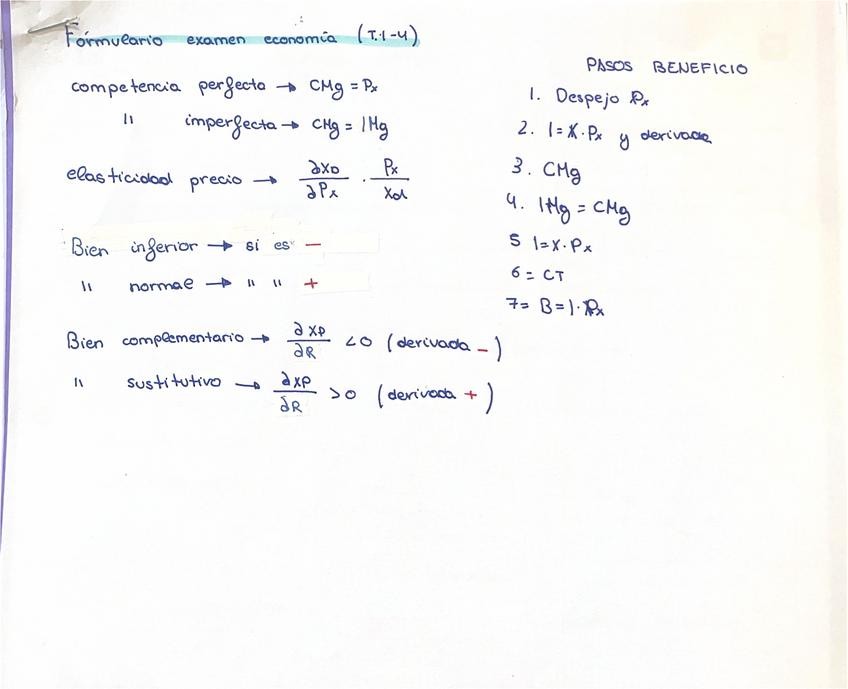 Fórmulario examen economía (T.1-4)
competencia perfecta → CMg = Px
" imperfecta → CMg = IMg
elasticidad precio → ∂XD/∂Px · Px/Xd
Bien inferior → si es -
" normal → " " +
Bien complementario → ∂XD/∂R <0 (derivada -)
" sustitutivo → ∂XD/∂R >0 (derivada +)
PASOS BENEFICIO
1. Despejo Px
2. I=X·Px y derivada
3. CMg
4. IMg = CMg
5 I=X·Px
6 = CT
7= B=I·Px